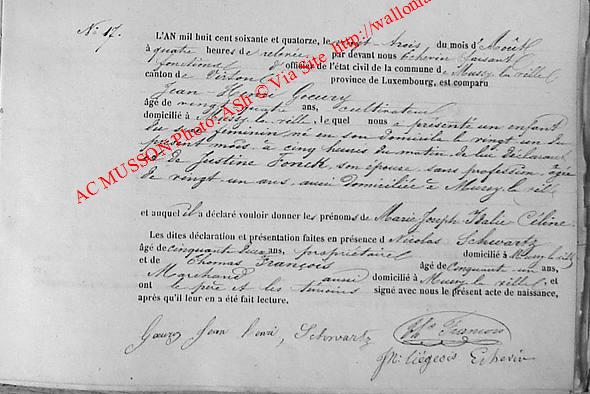 No 17.
L'AN mil huit cent soixante et quatorze, le vingt-trois du mois d'Août
à quatre heures de relevée, par devant nous Echevin faisant
fonctions d'officier de l'état civil de la commune de Mussy la ville
canton de Virton province de Luxembourg, est comparu
Jean-Henri Goeury
âgé de vingt quatre ans, cultivateur
domicilié à Mussy la ville, le quel nous a présenté un enfant
du sexe féminin né en son domicile le vingt un du
présent mois, à cinq heures du matin de lui déclarant
et de Justine Fonck, son épouse, sans profession, âgée
de vingt-un ans, aussi domiciliée à Mussy la ville
et auquel il a déclaré vouloir donner les prénoms de Marie Joseph Italie Céline.
Les dites déclaration et présentation faites en présence de Nicolas Schwartz
âgé de cinquante deux ans, propriétaire domicilié à Mussy la ville
et de Thomas François âgé de cinquante-un ans,
Marchand aussi domicilié à Mussy la ville, et
ont le père et les témoins signé avec nous le présent acte de naissance,
après qu'il leur en a été fait lecture.
Goeury Jean Henri, Schwartz Ths François
Liégeois Echevin
AC MUSSON Photo: ASh © Via Site http://wallonia